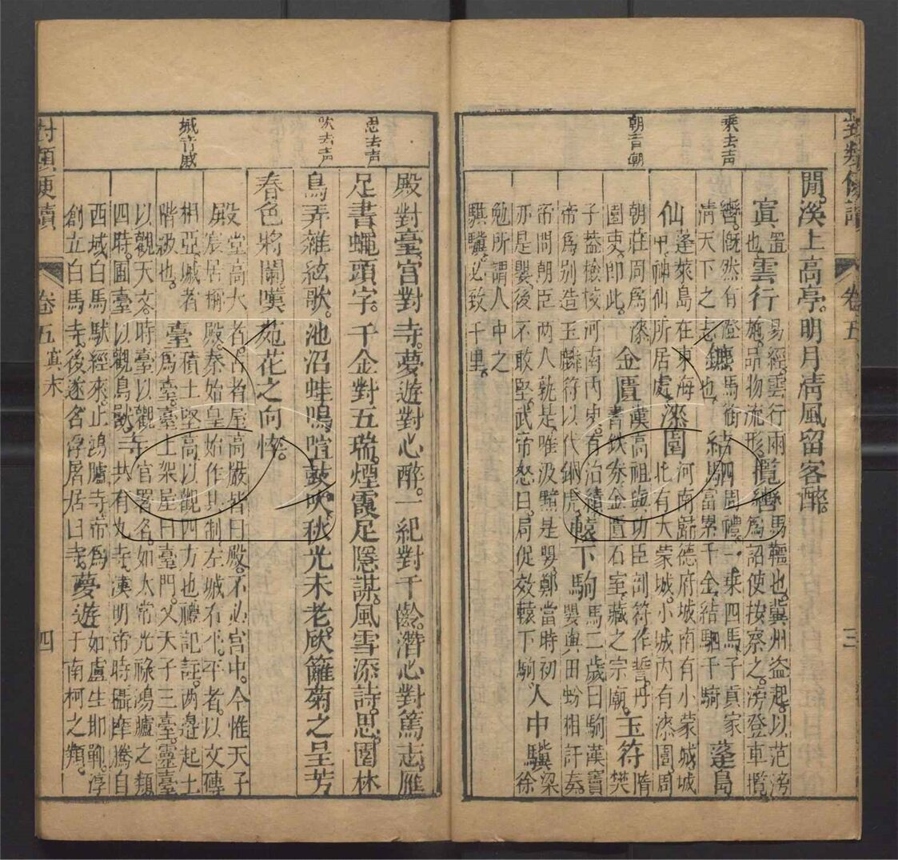 乘去声
朝音朝
閒。溪上高亭。明月清風留客醉。
宜 置也。雲行 易經雲行雨施。品物流形。攬轡 馬韁也。冀州盗起。以范滂為詔使按察之。滂登車攬
轡。慨然有澄清天下之志也。鑣 馬銜 結駟 周禮。一乘四馬。子貢家富累千金。結駟千騎 蓬島
蓬萊島在東海中。神仙所居處。漆園 河南歸德府城南有小蒙城。城北有大蒙城。小城內有漆園。周
仙
朝莊周為漆園吏。即此。金匱 漢高祖與功臣剖符作誓。丹書鉄券。金匱石室。藏之宗廟。玉符 隋樊
子盖檢校河南內史。有治績。帝為別造玉麟符以代銅虎。轅下駒 馬二歲曰駒。漢竇嬰與田蚡相訐奏。
帝問朝臣。两人孰是。唯汲黯是嬰。鄭當時初亦是嬰。後不敢堅。武帝怒曰。局促效轅下駒。人中驥 梁徐
勉所謂人中之騏驥。必致千里。
對類便讀
卷五
三
思去声
吹去声
城音戚
殿對臺。宮對寺。夢遊對心醉。一紀對千齡。潛心對篤志。雁
足書。蠅頭字。千金對五瑞。煙霞足隱謀。風雪添詩思。園林
鳥弄雜絃歌。池沼蛙鳴喧鼓吹。秋光未老。欣籬菊之呈芳。
春色將闌。嘆苑花之向悴。
殿 堂高大者。古者屋高嚴皆曰殿。不必宮中。今惟天子
宸居稱殿。秦始皇始作。其制左城右平。平者以文磚
相亞。城者階級也。臺 積土堅高以觀四方也。禮記註。两邊起土
為臺。臺上架屋曰臺門。又天子三臺。靈臺
以觀天文。時臺以觀四時。囿臺以觀鳥獸。寺 官署名。如太常光祿鴻臚之類。
共有九寺。漢明帝時。攝摩騰自
西域白馬馱經來。止鴻臚寺。帝為創立白馬寺。後遂合浮屠居曰寺。夢遊 如盧生邯鄲。淳于南柯之類。
對類便讀
卷五
寘未
四